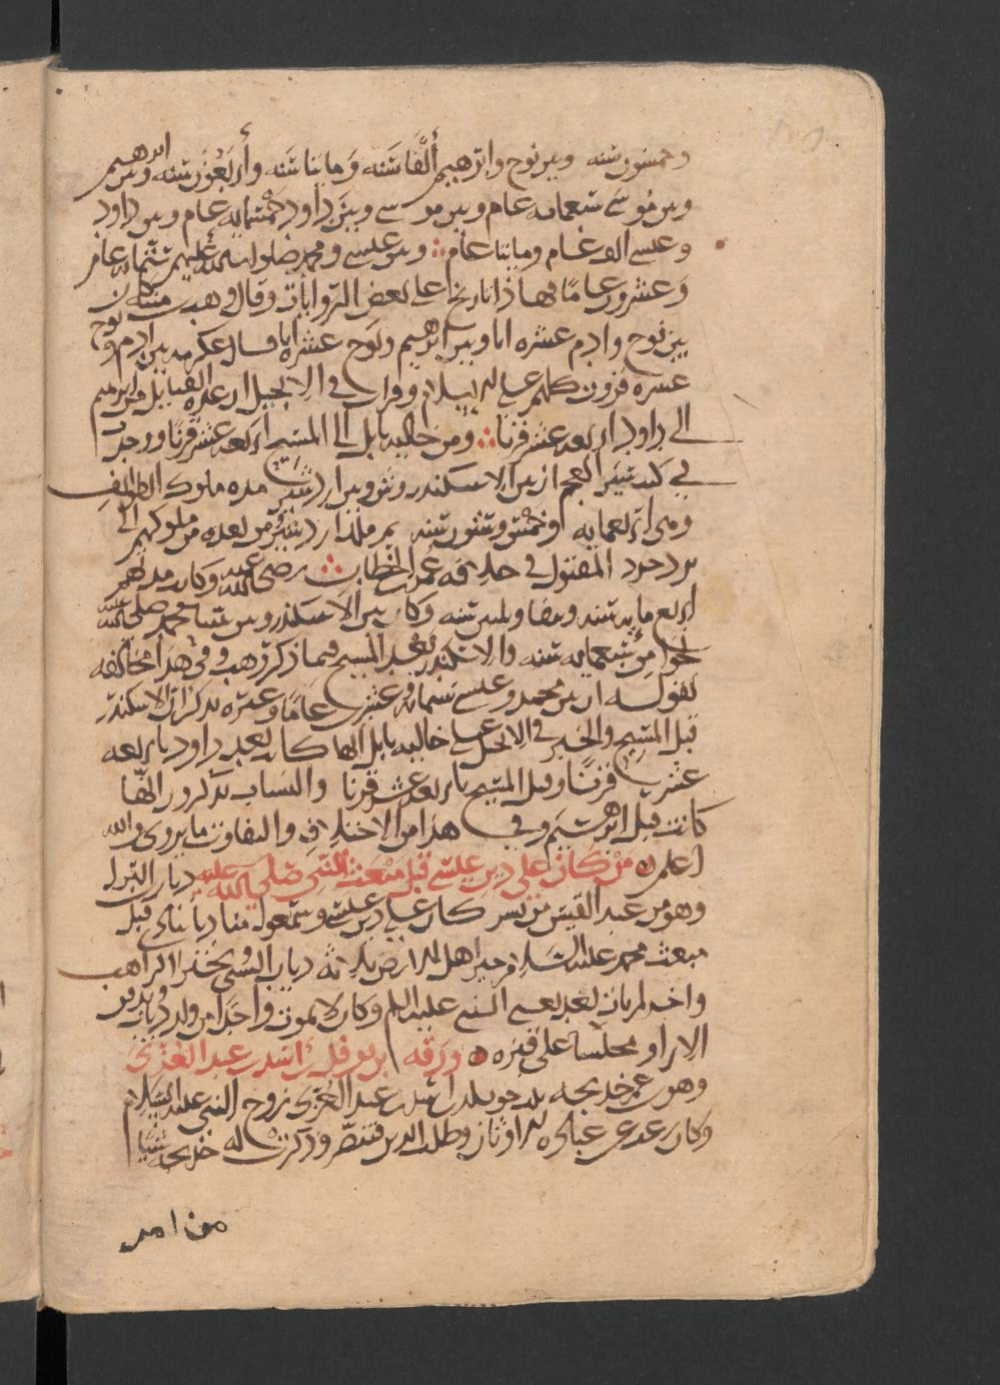 وخمسون سنه وبين نوح وابرهيم ألفا سَنه وَمايتا سَنه وأربَعُوَن سنه وبين ابرهيم
وبين مُوسَي سَبعمايه عَام وبين موسي وبيَن داود خمسمايه عام وبين داود
وعيسي الف عَام ومايتا عام وبين عيسي ومحمد صلوات الله عليهم ستمايه عام
وَعشرون عامًا فهاذا تاريخ علي بعض الروايات وقال وهب كان
بين نوح وادم عشره ابا وبين ابرهيم ونوح عشره ابا قال عكرمه بين ادم ونوح
عشره قرون كلهم علي الاسلام وقرات في الانجيل ان عدة القبايل من ابرهيم
الي داود اربعه عشر قرنا ومن جاليه بابل الي المسيح اربعه عشر قرنًا ووجدت
في كتب سِيَر العجم ان بين الاسكندروش وبين اردشير مده ملوك الطوايف
وهي اربعمايه وخمْس وستون سَنه ثم ملك اردشير ومن بعده من ملوكهم الي
يزدجرد المقتول في خلافه عُمر بن الخطاب رضي الله عنه وكان مدتهم
اربع مايه سنه وبضا وثلثين سَنه وكان بين الاسكندروس وبين نبينا محمد صلي الله عليه
نحوا من تسعمايه سَنه والاسكندر بُعيد المسيح فيما ذكر وهب وفي هذا مخالفه
لقوله ان بين محمد وعيسي ستمايه وعشرين عامًا وغيره يذكر ان الاسكندر
قبل المسَيح والخبر في الانجيل علي جاليه بابل انها كان بعد داود باربعه
عشر قرنًا وقبل المسَيح باربعه عشر قرنا والنساب تذكرون انها
كانت قبل ابرهيم وفي هذا من الاختلاف والتفاوت ما يروي والله
اعلم ۞ مَنْ كانَ على دين عيسَي قبل مَبْعث النَّبي صَلي الله عليه رياب بن البرا
وهو من عبد القيس من شن كان علي دين عيسَي وسَمعوا مناديا ينادي قبل
مبعث محمد عليه السَلام خير اهل الارض ثلاثه رياب الشني وبحيرا الراهب
واخر لم يات بعد يعني النبي عليه السلم وكان لا يموت واحدا من ولد رياب فيدفن
الا راو مجلسا على قبره ۞ ورقه بن نوفل بن أسَد بن عبد العُزّي
وهو بن عم خديجه بنت خويلد بن اسَد بن عبد العُزّي زوج النبي عليه السَلام
وكان رغب عن عباده الاوثان وطلب الدين فتنصّر وذكرت له خديجه شيًا
من امر